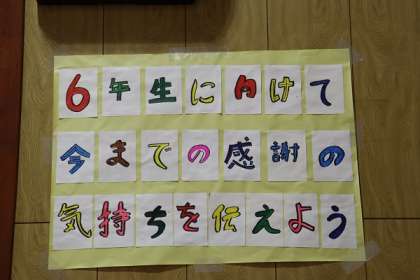 6年生に向けて
今までの感謝の
気持ちを伝えよう